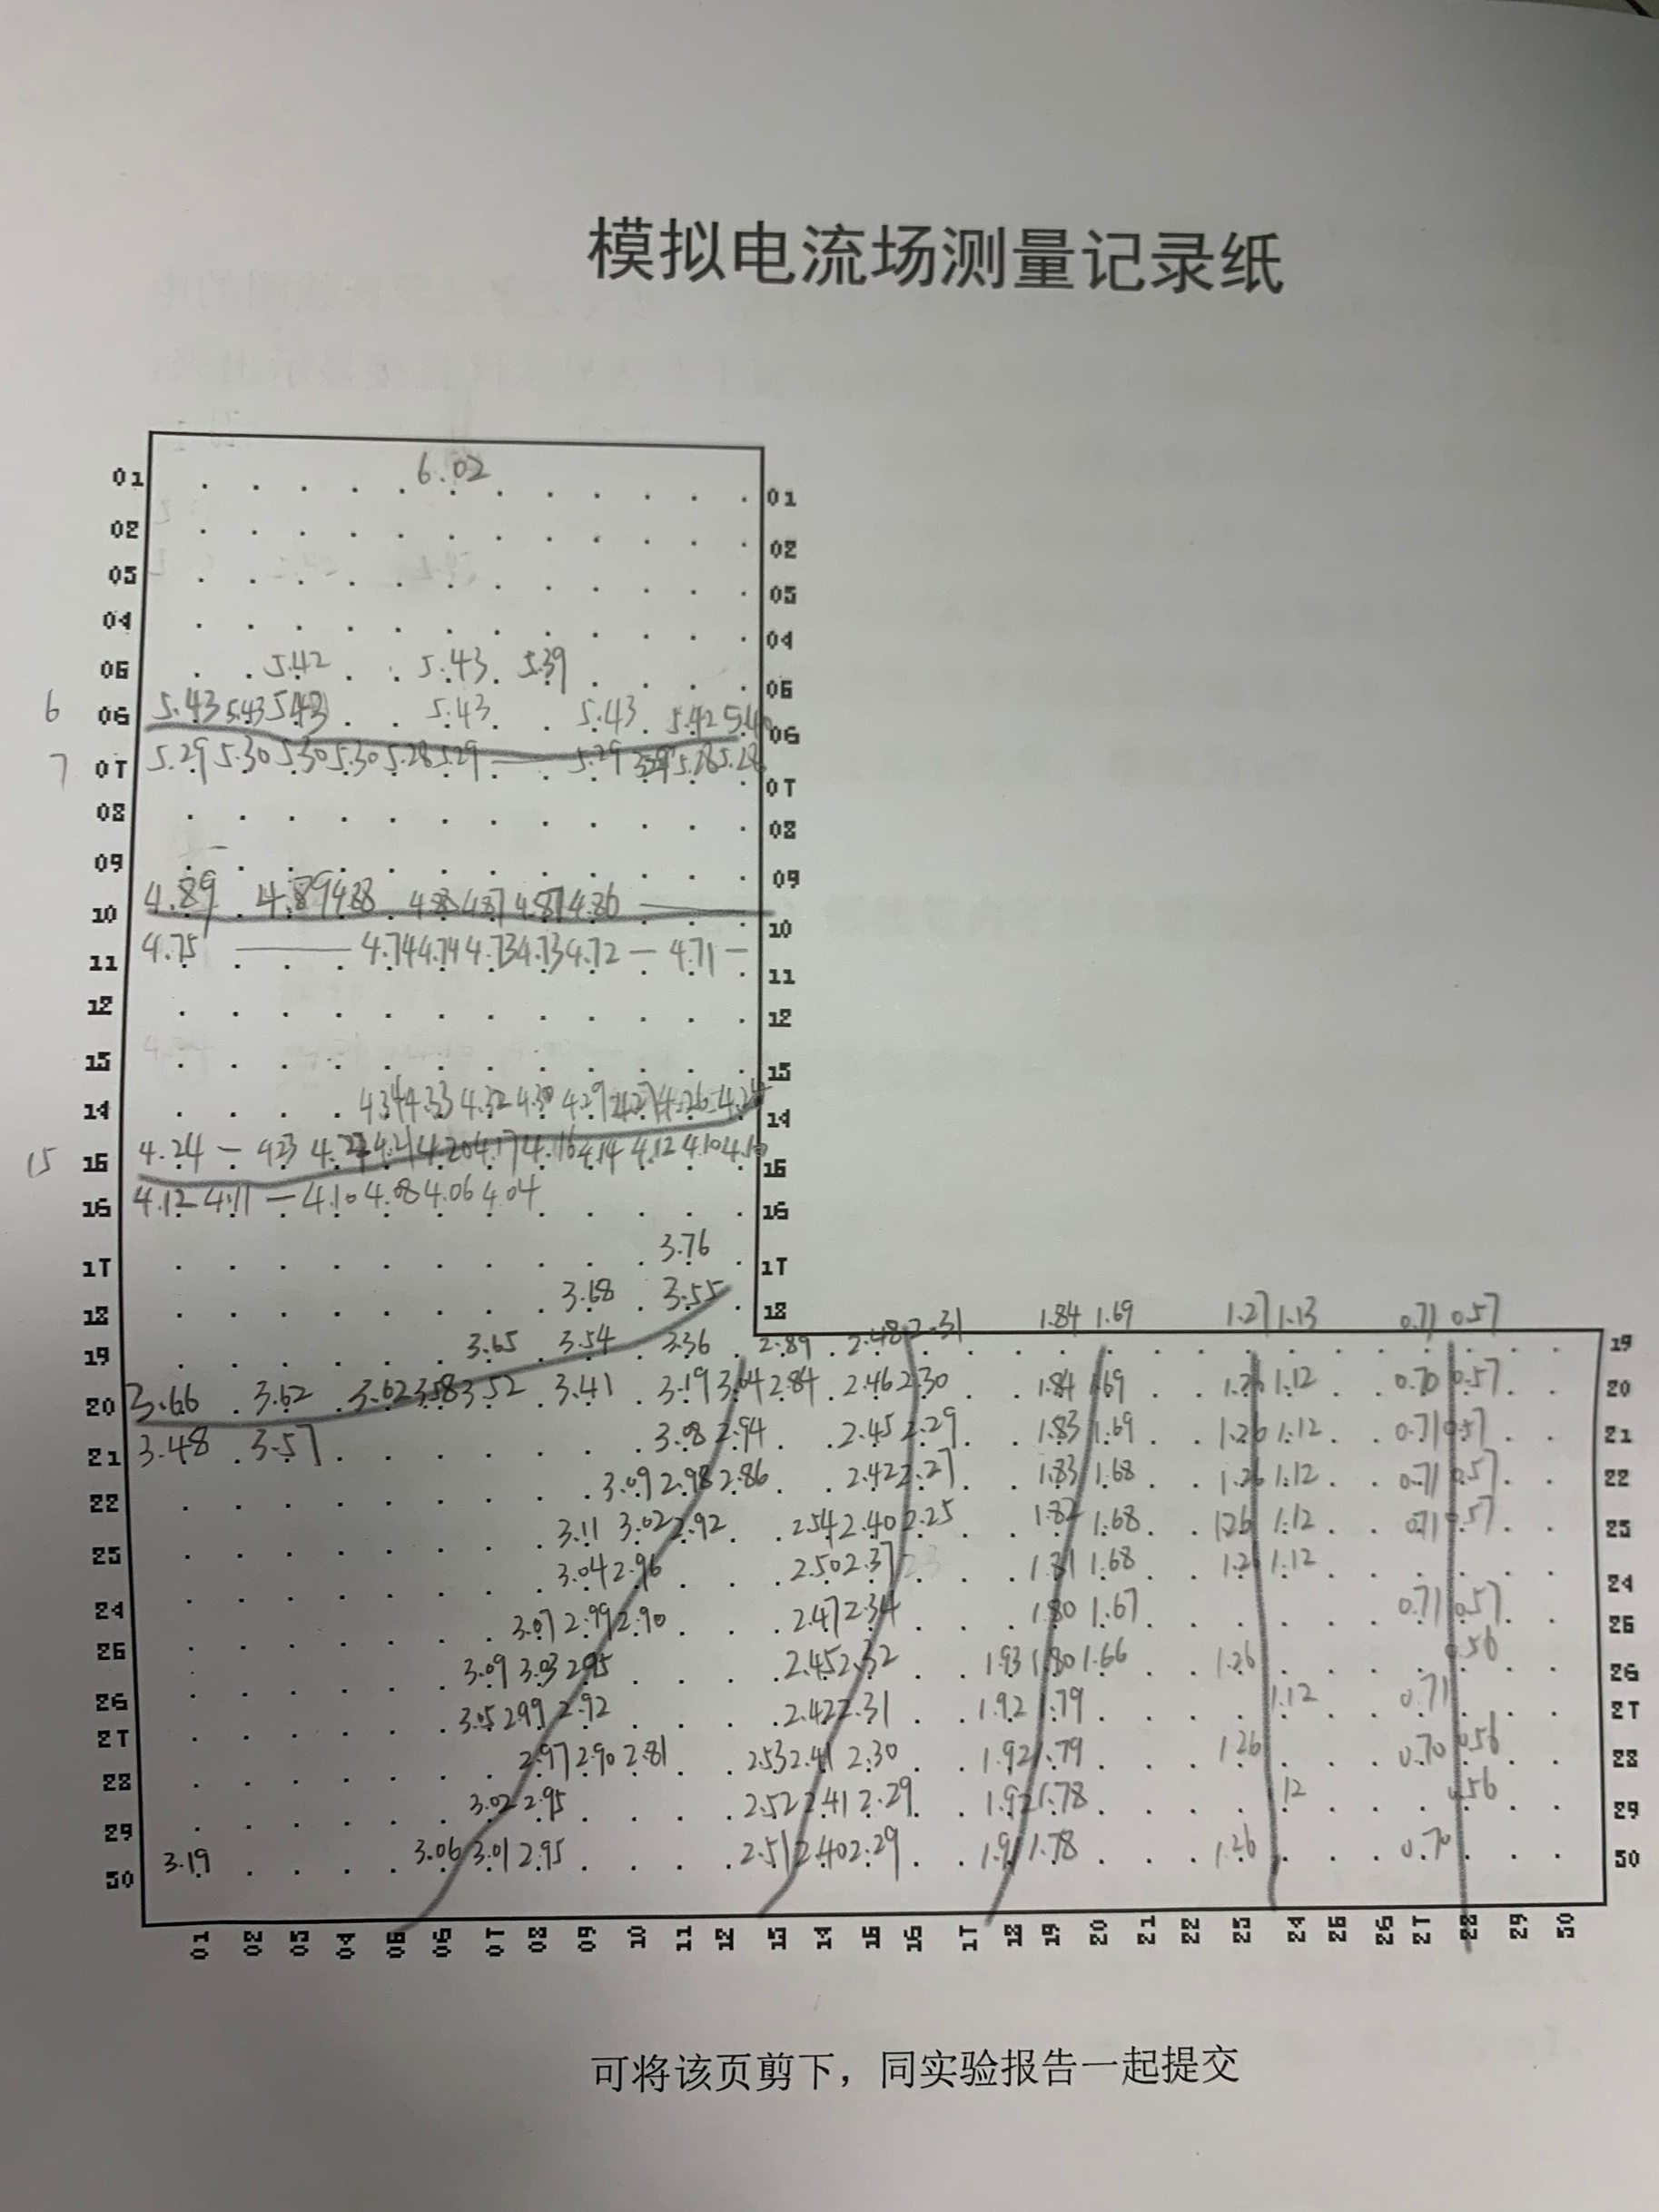 模拟电流场测量记录纸
01 6.02 01
02 02
03 03
04 04
05 5.42 5.43 5.39 05
6 06 5.43 5.43 5.43 5.43 5.43 5.42 06
7 07 5.29 5.30 5.30 5.30 5.28 5.29 — 5.29 5.28 5.28 07
08 08
09 09
10 4.89 4.89 4.88 4.88 4.87 4.87 4.86 — 10
11 4.75 — 4.74 4.74 4.73 4.73 4.72 — 4.71 — 11
12 12
13 13
14 4.34 4.33 4.32 4.30 4.29 4.27 4.26 4.24 14
15 15 4.24 — 4.23 4.22 4.21 4.20 4.17 4.16 4.14 4.12 4.10 4.10 15
16 4.12 4.11 — 4.10 4.08 4.06 4.04 16
17 3.76 17
18 3.68 3.55 18
19 3.65 3.54 3.36 2.89 2.48 2.31 1.84 1.69 1.27 1.13 0.71 0.57 19
20 3.66 3.62 3.62 3.58 3.52 3.41 3.19 3.04 2.84 2.46 2.30 1.84 1.69 1.26 1.12 0.70 0.57 20
21 3.48 3.57 3.08 2.94 2.45 2.29 1.83 1.69 1.26 1.12 0.71 0.57 21
22 3.09 2.98 2.86 2.42 2.27 1.83 1.68 1.26 1.12 0.71 0.57 22
23 3.11 3.02 2.92 2.54 2.40 2.25 1.82 1.68 1.26 1.12 0.71 0.57 23
24 3.04 2.96 2.50 2.37 1.81 1.68 1.26 1.12 24
25 3.07 2.99 2.90 2.47 2.34 1.80 1.67 0.71 0.57 25
26 3.09 3.03 2.95 2.45 2.32 1.93 1.80 1.66 1.26 0.56 26
27 3.05 2.99 2.92 2.42 2.31 1.92 1.79 1.12 0.71 27
28 2.97 2.90 2.81 2.53 2.41 2.30 1.92 1.79 1.26 0.70 0.56 28
29 3.02 2.95 2.52 2.41 2.29 1.92 1.78 12 0.56 29
30 3.19 3.06 3.01 2.95 2.51 2.40 2.29 1.91 1.78 1.26 0.70 30
01 02 03 04 05 06 07 08 09 10 11 12 13 14 15 16 17 18 19 20 21 22 23 24 25 26 27 28 29 30
可将该页剪下，同实验报告一起提交